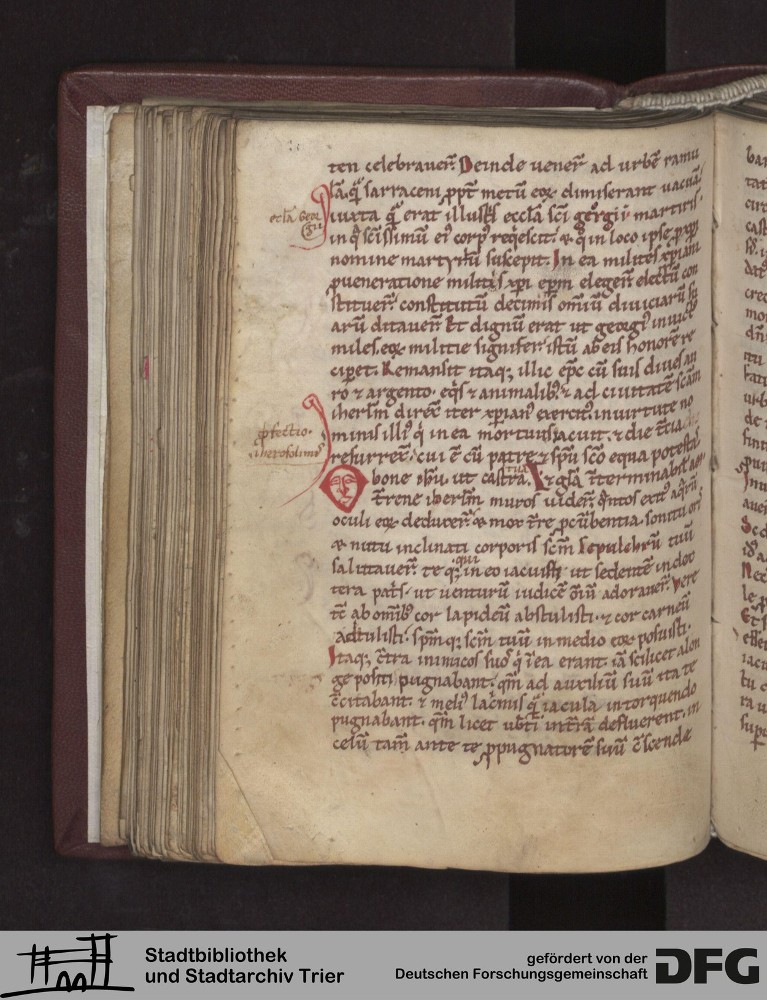 ten celebraueꝝ̄. Deinde ueneꝝ̄ ad urbē ramu
lā. q̄ sarraceni ꝓpt̄ metū eoꝝ dimiserant uacuā.
ecl'a Geor
gii
iuxta q̄ erat illust̄s eccl'a sc̄i georgii martiris.
in q̄ sc̄issimū ei' corp' req̄escit. & q̄ in loco ipse
nomine martyriū suscepit. In ea milites xp̄iani
militis xp̄i ep̄m elegeꝝ̄ electū con
stitueꝝ̄ constitutū decimis om̄iū diuiciarū su
arū ditaueꝝ̄ Et dignū erat ut georgi' inuict'
miles. eoꝝ militie signifer istū ab eis honorē re
ciꝑet. Remansit itaq; illic ep̄c cū suis diues au
ro & argento. eq̄s & animalib;. & ad ciuitatē sc̄am
iherl̄m direx̄ iter xp̄ian' exercit' in uirtute no
ꝓfectio.
iherosolimā
minis illi' q̄ in ea mortuus iacuit. & die t̄cia
resurrex̄. cui ē cū patre & sp̄u sc̄o equa potestas
& gl̄a īterminabil'. am̄.
O bone ih̄u. ut castra tua
t̄rene iherl̄m muros uideꝝ̄. q̄ntos exit' aq̄rū
oculi eoꝝ deduxeꝝ̄. & mox t̄re ꝓcūbentia. sonitu oris
& nutu inclinati corporis sc̄m sepulchrū tuū
salutaueꝝ̄. te q; qui in eo iacuisti ut sedentē in dex
tera pat̄s. ut uenturū iudicē om̄iū adoraueꝝ̄. Vere
tc̄ ab om̄ib; cor lapideū abstulisti. & cor carneū
adtulisti. sp̄m q; sc̄m tuū in medio eoꝝ posuisti.
Itaq; c̄tra inimicos suos q̄ ī ea erant. iā scilicet a lon
ge positi pugnabant. qm̄ ad auxiliū suū ita te
c̄citabant. & meli' lac̄mis q̄ iacula intorquendo
pugnabant. qm̄ licet ub̄ti in t̄rā defluerent. in
celū tam̄ ante te ꝓpugnatorē suū c̄scende
Stadtbibliothek
und Stadtarchiv Trier
gefördert von der
Deutschen Forschungsgemeinschaft
DFG